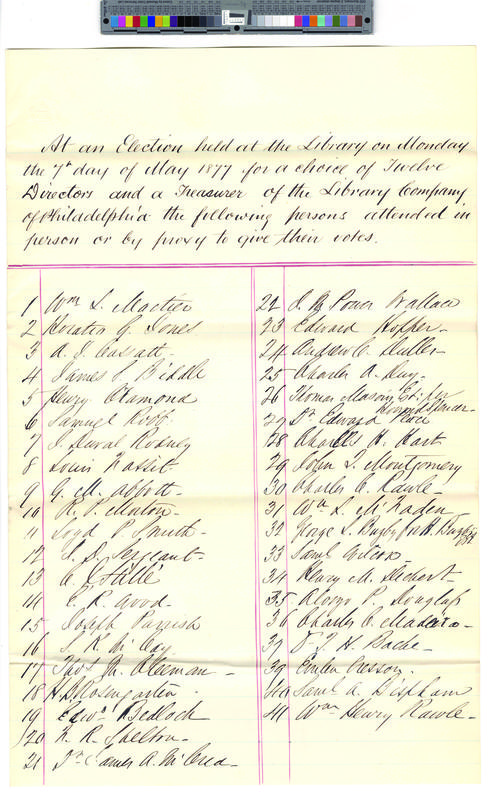 At an Election held at the Library on Monday
the 7th day of May 1877 for a choice of Twelve
Directors and a Treasurer of the Library Company
of Philadelphia the following persons attended in
person or by proxy to give their votes.
1 Wm L. Mactier
2 Horatio G. Jones
3 A. J. Cassatt
4 James S. Biddle
5 Henry Cramond
6 Samuel Robb
7 J. Duval Rodney
8 Louis
9 G. M. Abbott
10 R. P. Morton
11 Lloyd P. Smith
12 J. D. Sergeant
13 A. Stillé
14 E. R. Wood
15 Joseph Parrish
16 J. K. McCay
17 Thos M. Cleeman
18 H. B. Rosengarten
19 Edwd Bedloch
20 F. R. Shelton
21 Dr James A. McCrea
22 J. B. Power Wallace
23 Edward Hopper
24 Andrew C.
25 Charles A.
26 Thomas Mason
27 Dr Edward Peace
28 Charles H. Hart
29 John T. Montgomery
30 Charles C. Rawle
31 Wm L. McFaden
32 George S. Bugby for H. Bugby
33 Saml Wilcox
34 Henry M. Dechert
35 Alonzo P. Douglass
36 Charles C. Madeira
37 D. F. H. Bache
39 Emlen Cresson
40 Saml A. Bispham
41 Wm Henry Rawle